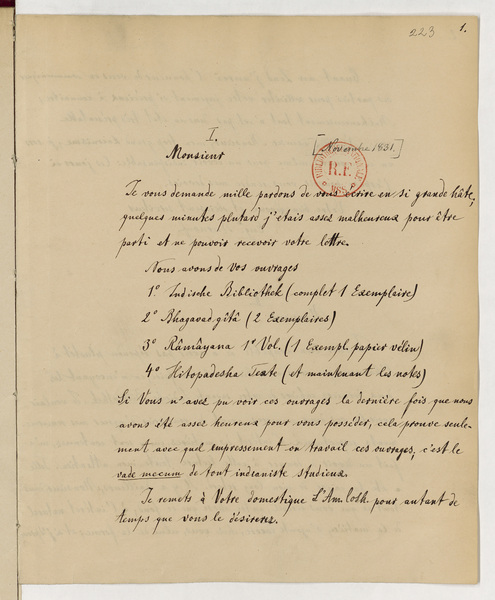 223 1.
I.
[Novembre 1831.]
Monsieur
R.F.
Je vous demande mille pardons de vous écrire en si grande hâte,
quelques minutes plutard j'étais assez malheureux pour être
parti et ne pouvoir recevoir votre lettre.
Nous avons de vos ouvrages
1º Indische Bibliothek (complet 1 Exemplaire)
2º Bhagavad.gîtâ (2 Exemplaires)
3º Râmâyana 1r Vol. (1 Exempl. papier vélin)
4º Hitopadesha texte (et maintenant les notes)
Si Vous n'avez pu voir ces ouvrages la dernière fois que nous
avons été assez heureux pour vous posséder, cela prouve seule-
ment avec quel empressement on travail ces ouvrages, c'est le
vade mecum de tout indianiste studieux.
Je remets à Votre domestique L'Am. Cosh. pour autant de
temps que vous le désirerez.